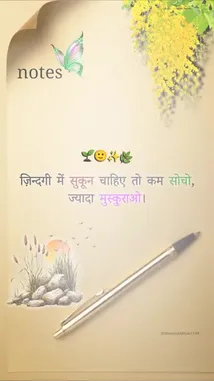 notes
🌱🙂✨🌿
ज़िन्दगी में सुकून चाहिए तो कम सोचो,
ज्यादा मुस्कुराओ।